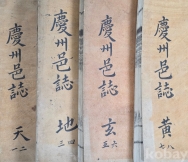 慶州邑誌 天 一二
慶州邑誌 地 三四
慶州邑誌 玄 五六
慶州邑誌 黃 七八
kobay